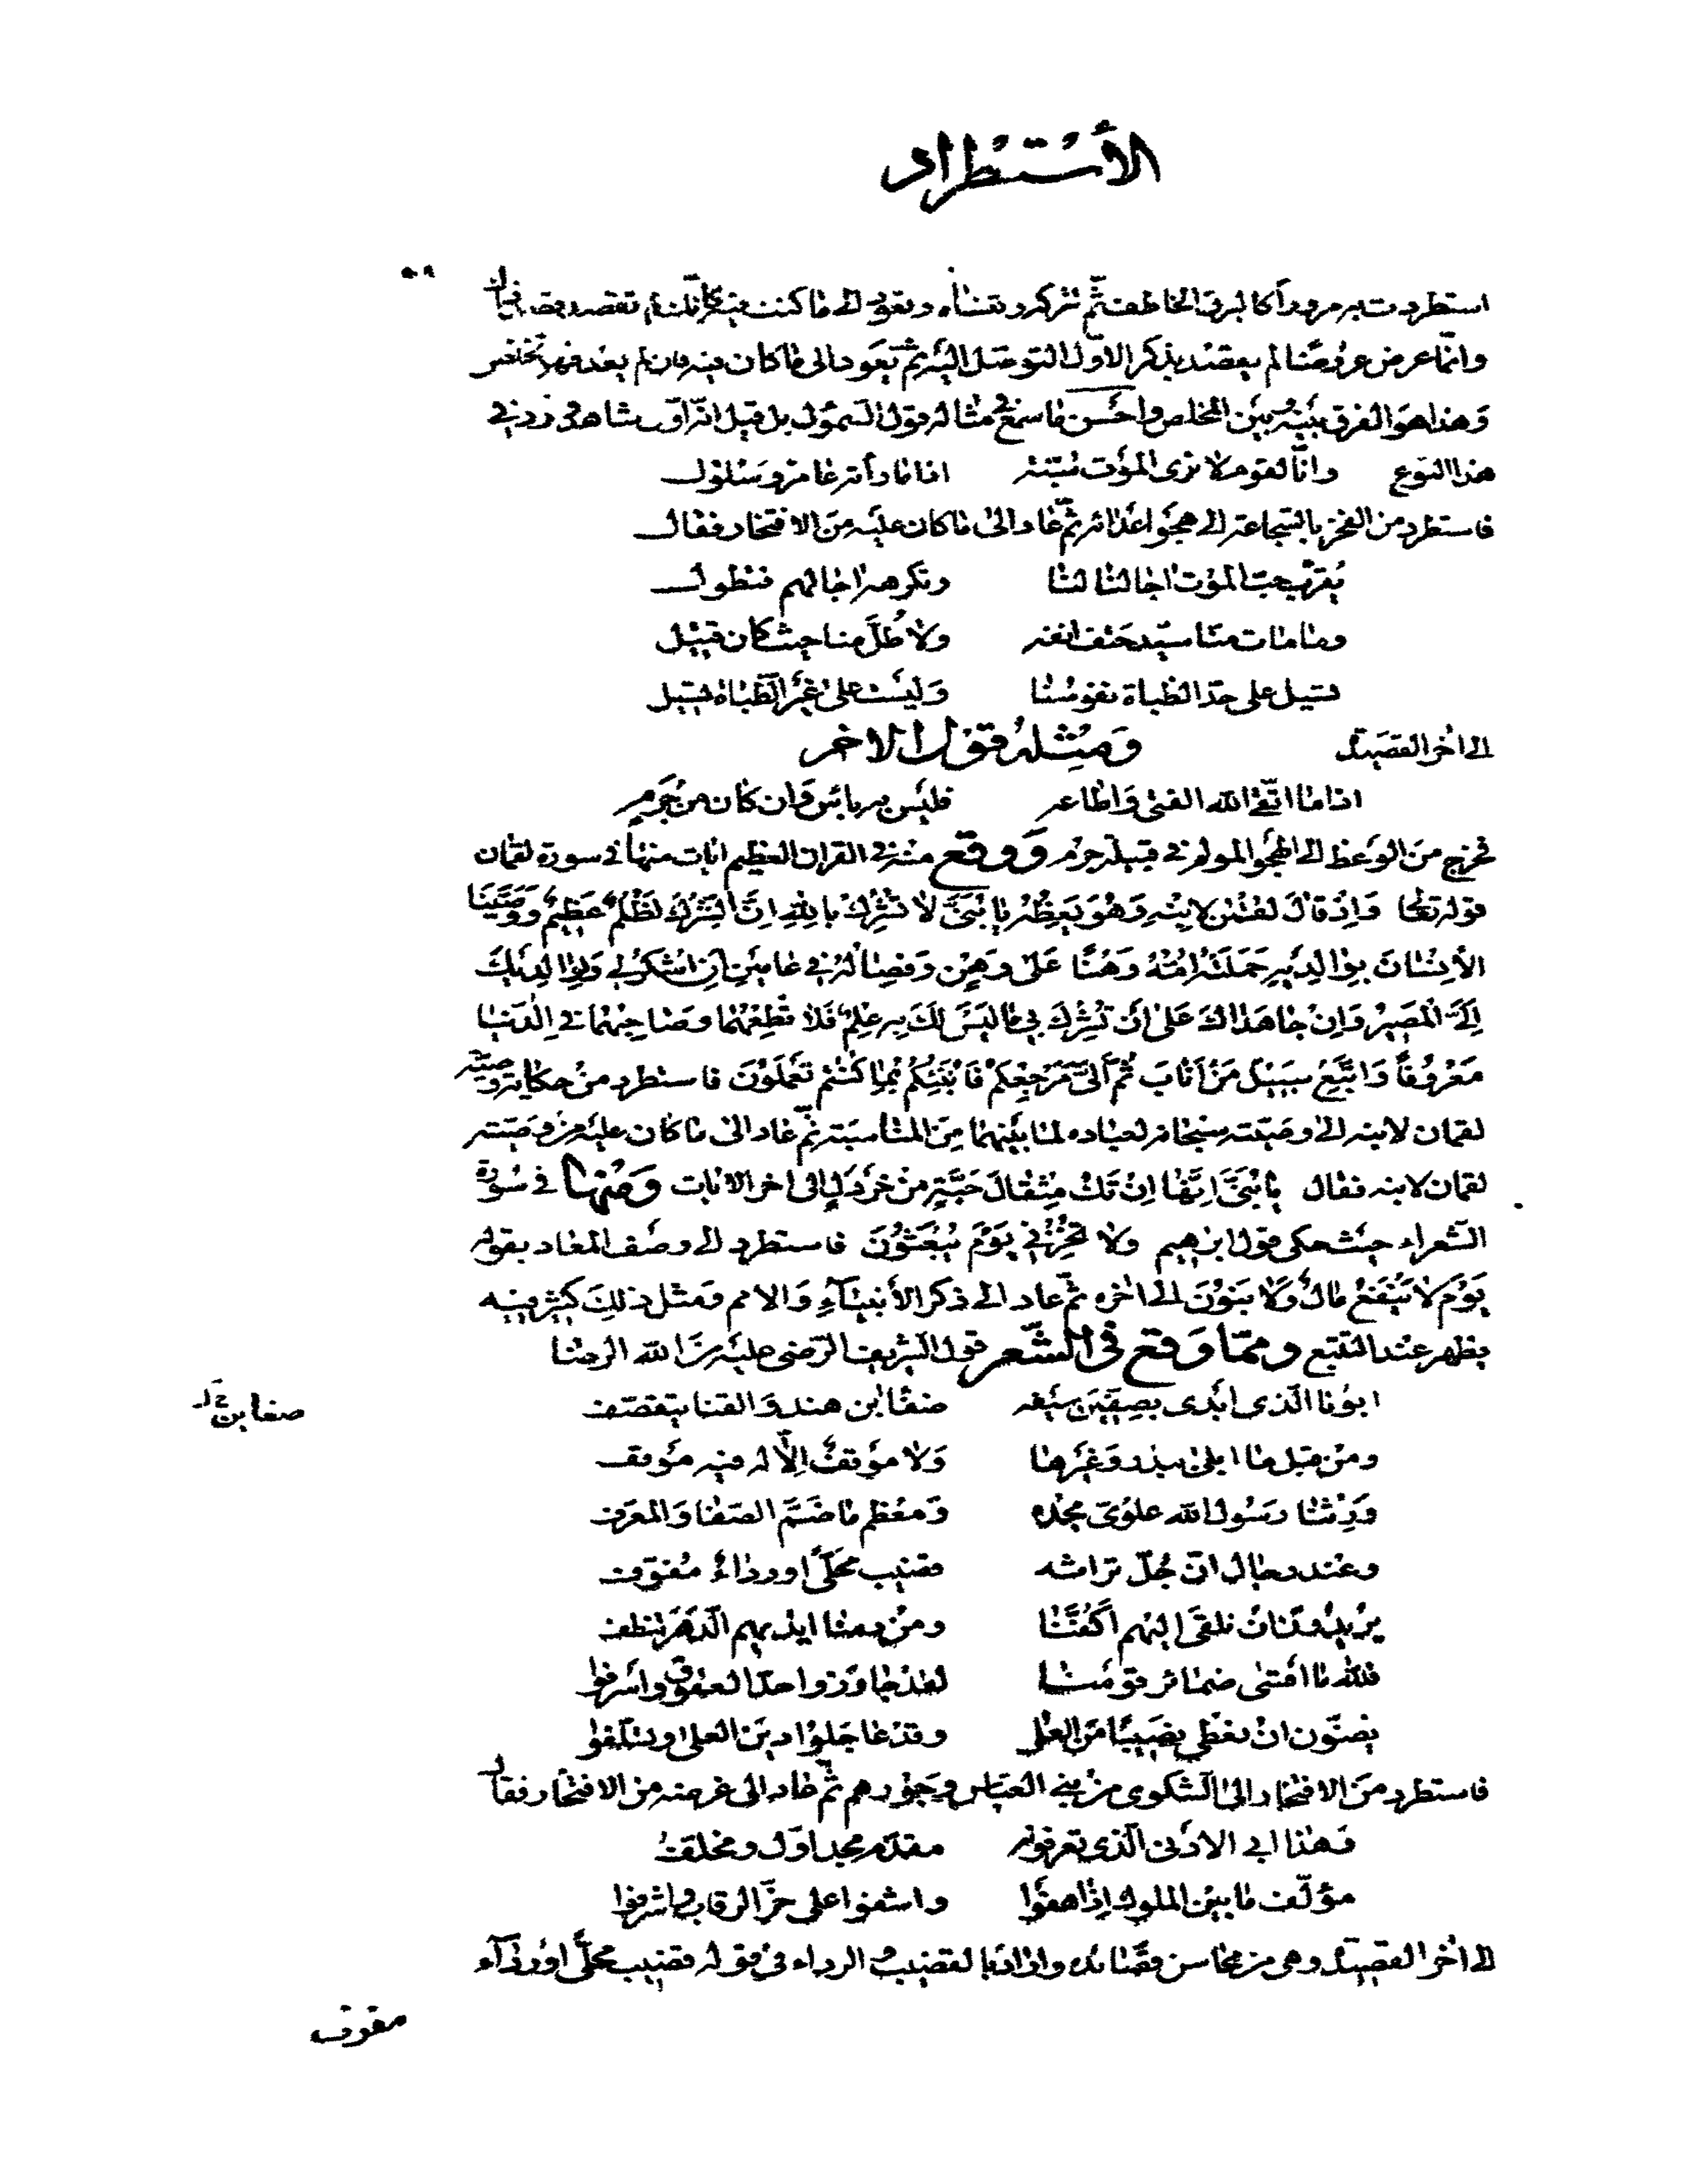 الأستطراد
استطردت به مرورا كالبرق الخاطف ثم تتركه وتنساه وتعود الى ما كنت فيه كأنك لم تقصد قصد ذاك
وانما عرض عروضا لم يقصد بذكر الاول التوصل اليه ثم تعود الى ما كان فيه فان لم يعد فهو تخلص
وهذا هو الفرق بينه وبين المخلص واحسن ما سمع في مثاله قول السموأل بل قيل انه اول شاهد ورد في
هذا النوع وانا لقوم لا نرى الموت سبة اذا ما رأته عامر وسلول
فاستطرد من الفخر بالشجاعة الى هجو اعدائه ثم عاد الى ما كان عليه من الافتخار فقال
يقرب حب الموت اجالنا لنا وتكرهه اجالهم فتطول
وما مات منا سيد حتف انفه ولا طل منا حيث كان قتيل
تسيل على حد الظباة نفوسنا وليست على غير الظباة تسيل
الى اخر القصيدة ومثله قول الاخر
اذا ما اتقى الله الفتى واطاعه فليس به باس وان كان من جرم
فخرج من الوعظ الى الهجو المولم في قبيلة جرم ووقع منه في القران العظيم ايات منها في سورة لقمان
قوله تعالى وَإِذْ قَالَ لُقْمٰنُ لِابْنِهِ وَهُوَ يَعِظُهُ يَا بُنَيَّ لَا تُشْرِكْ بِاللهِ اِنَّ الشِّرْكَ لَظُلْمٌ عَظِيمٌ وَوَصَّيْنَا
الْأِنْسَانَ بِوَالِدَيْهِ حَمَلَتْهُ أُمُّهُ وَهْنًا عَلَى وَهْنٍ وَفِصَالُهُ فِي عَامَيْنِ اَنِ اشْكُرْ لِي وَلِوَالِدَيْكَ
اِلَيَّ الْمَصِيرُ وَاِنْ جَاهَدَاكَ عَلَى أَنْ تُشْرِكَ بِي مَا لَيْسَ لَكَ بِهِ عِلْمٌ فَلَا تُطِعْهُمَا وصَاحِبْهُمَا فِي الدُّنْيَا
مَعْرُوفًا وَاتَّبِعْ سَبِيلَ مَنْ اَنَابَ ثُمَّ اِلَيَّ مَرْجِعُكُمْ فَاُنَبِّئُكُمْ بِمَا كُنْتُمْ تَعْمَلُونَ فاستطرد من حكاية وصية
لقمان لابنه الى وصيته سبحانه لعباده لما بينهما من المناسبة ثم عاد الى ما كان عليه من وصية
لقمان لابنه فقال يَا بُنَيَّ اِنَّهَا اِنْ تَكُ مِثْقَالَ حَبَّةٍ مِنْ خَرْدَلٍ الى اخر الايات ومنها في سورة
الشعراء حيث حكى قول ابرهيم وَلَا تُخْزِنِي يَوْمَ يُبْعَثُونَ فاستطرد الى وصف المعاد بقوله
يَوْمَ لَا يَنْفَعُ مَالٌ وَلَا بَنُونَ الى اخره ثم عاد الى ذكر الأنبيآء والامم ومثل ذلك كثير فيه
يظهر عند التتبع ومما وقع في الشعر قول الشريف الرضى عليه من الله الرضا
ابونا الذى ابدى بصفين سيفه ضغا ابن هند والقنا يتقصف
صغا ابن خ ل
ومن قبل ما ابلى ببدر وغيرها ولا موقف إلا له فيه موقف
ورثنا رسول الله علوي مجده ومعظم ما ضم الصفا والمعرف
وعند رجال ان جل تراثه قضيب محلى او رداء مفوف
يريدون ان نلقى اليهم اكفنا ومن دمنا ايديهم الدهر تنطف
فلله ما اقسى ضمائر قومنا لقد جاوزوا حد العقوق واسرفوا
يضنون ان نعطى نصيبا من العلى وقد عاجلوا دين العلى وتسلفوا
فاستطرد من الافتخار الى الشكوى من بني العباس وجورهم ثم عاد الى غرضه من الافتخار فقال
وهذا ابي الادنى الذى تعرفونه مقدم مجد اول ومخلف
مؤلف ما بين الملوك اذا هفوا واشفوا على حز الرقاب واشرفوا
الى اخر القصيدة وهى من محاسن قصائده واراد بالقضيب والرداء في قوله قضيب محلى او ردآء
مفوف